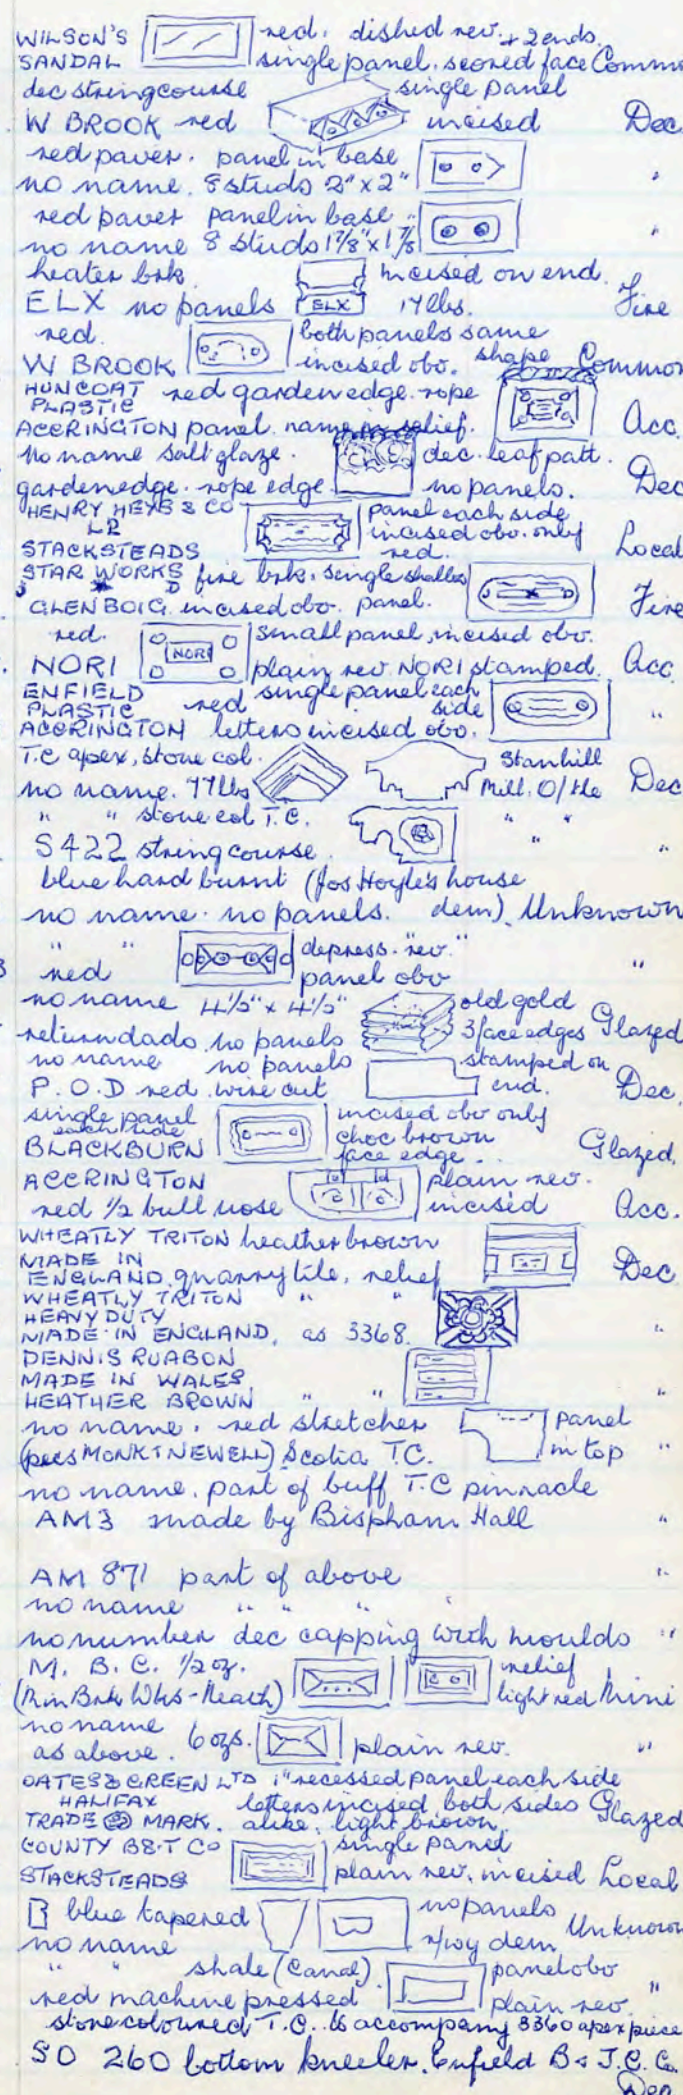 WILSON'S red. dished rev. + 2 ends.
SANDAL single panel. scored face Commo
dec stringcourse single panel
W BROOK red incised Dec
red paver. panel in base
no name. 8 studs 2" x 2" "
red paver panel in base
no name 8 studs 1⅞" x 1⅞ "
heater brk incised on end.
ELX no panels ELX 14lbs. Fire
red. both panels same
W BROOK incised obv. shape Common
HUNCOAT red garden edge. rope
PLASTIC
ACCRINGTON panel. name in relief. Acc.
No name salt glaze. dec. leaf patt.
garden edge. rope edge no panels. Dec
HENRY HEYS & CO panel each side
LD incised obv. only
STACKSTEADS red. Local
STAR WORKS fire brk. single shallow
GLENBOIG. incised obv. panel. Fire
red. small panel, incised obv.
NORI NORI plain rev. NORI stamped. Acc
ENFIELD single panel each
PLASTIC red side
ACCRINGTON letters incised obv. "
T.C apex, stone col. Stanhill
no name. 77lbs Mill. O/tle Dec
" " stone col T.C. " "
S422 stringcourse. "
blue hard burnt (Jos Hoyle's house
no name. no panels. dem) Unknown
" " depress. rev.
red panel obv "
no name 4½" x 4½" old gold
return dado no panels 3 face edges Glazed
no name no panels stamped on
P.O.D red wire cut end. Dec.
single panel incised obv only
each side choc brown
BLACKBURN face edge. Glazed.
ACCRINGTON plain rev.
red ½ bull nose incised Acc.
WHEATLY TRITON heather brown
MADE IN
ENGLAND. quarry tile, relief Dec
WHEATLY TRITON " "
HEAVY DUTY
MADE IN ENGLAND, as 3368. "
DENNIS RUABON
MADE IN WALES
HEATHER BROWN " " "
no name. red stretcher panel
(pecs MONK & NEWELL) Scotia T.C. in top "
no name. part of buff T.C pinnacle
AM3 made by Bispham Hall "
AM 871 part of above "
no name " " "
no number dec capping with moulds "
M. B. C. ½ oz. relief
(Min Brk Wks - Neath) light red Mini
no name
as above. 6 ozs. plain rev. "
OATES & GREEN LTD 1" recessed panel each side
HALIFAX letters incised both sides
TRADE MARK. alike. light brown. Glazed
COUNTY B & T CO single panel
STACKSTEADS plain rev. incised Local
B blue tapered no panels
no name r/way dem Unknown
" " shale (Canal). panel obv
red machine pressed plain rev. "
stone coloured T.C. to accompany 3360 apex piece
SO 260 bottom kneeler. Enfield B & T.C. Co.
Dec